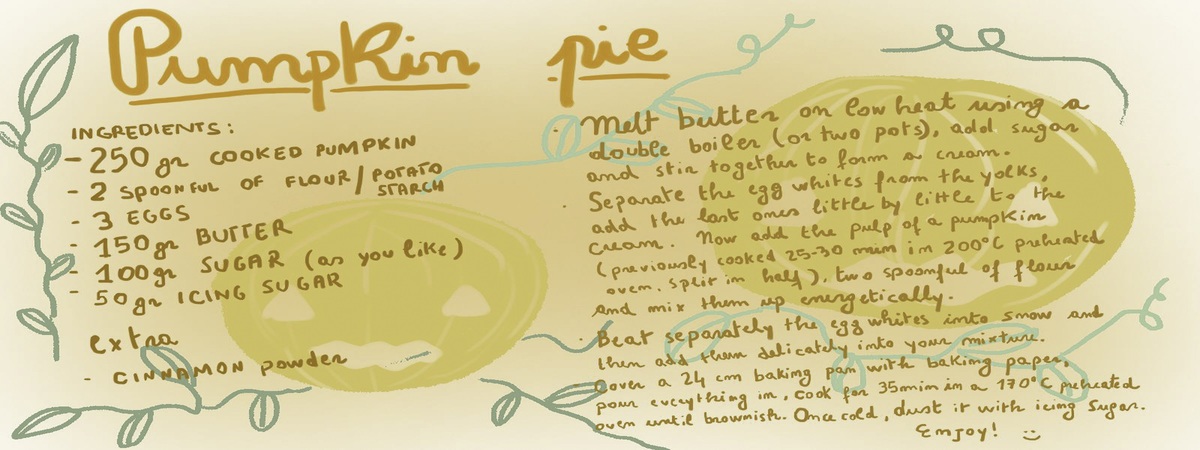 Pumpkin pie
INGREDIENTS:
- 250 gr COOKED PUMPKIN
- 2 SPOONFUL OF FLOUR/POTATO STARCH
- 3 EGGS
- 150 gr BUTTER
- 100 gr SUGAR (as you like)
- 50 gr ICING SUGAR
extra
- CINNAMON powder
- Melt butter on low heat using a
double boiler (or two pots), add sugar
and stir together to form a cream.
- Separate the egg whites from the yolks,
add the last ones little by little to the
cream. Now add the pulp of a pumpkin
(previously cooked 25-30 min in 200°C preheated
oven. split in half), two spoonful of flour
and mix them up energetically.
- Beat separately the egg whites into snow and
then add them delicately into your mixture.
Cover a 24 cm baking pan with baking paper,
pour everything in, cook for 35 min in a 170°C preheated
oven until brownish. Once cold, dust it with icing sugar.
Enjoy! :)